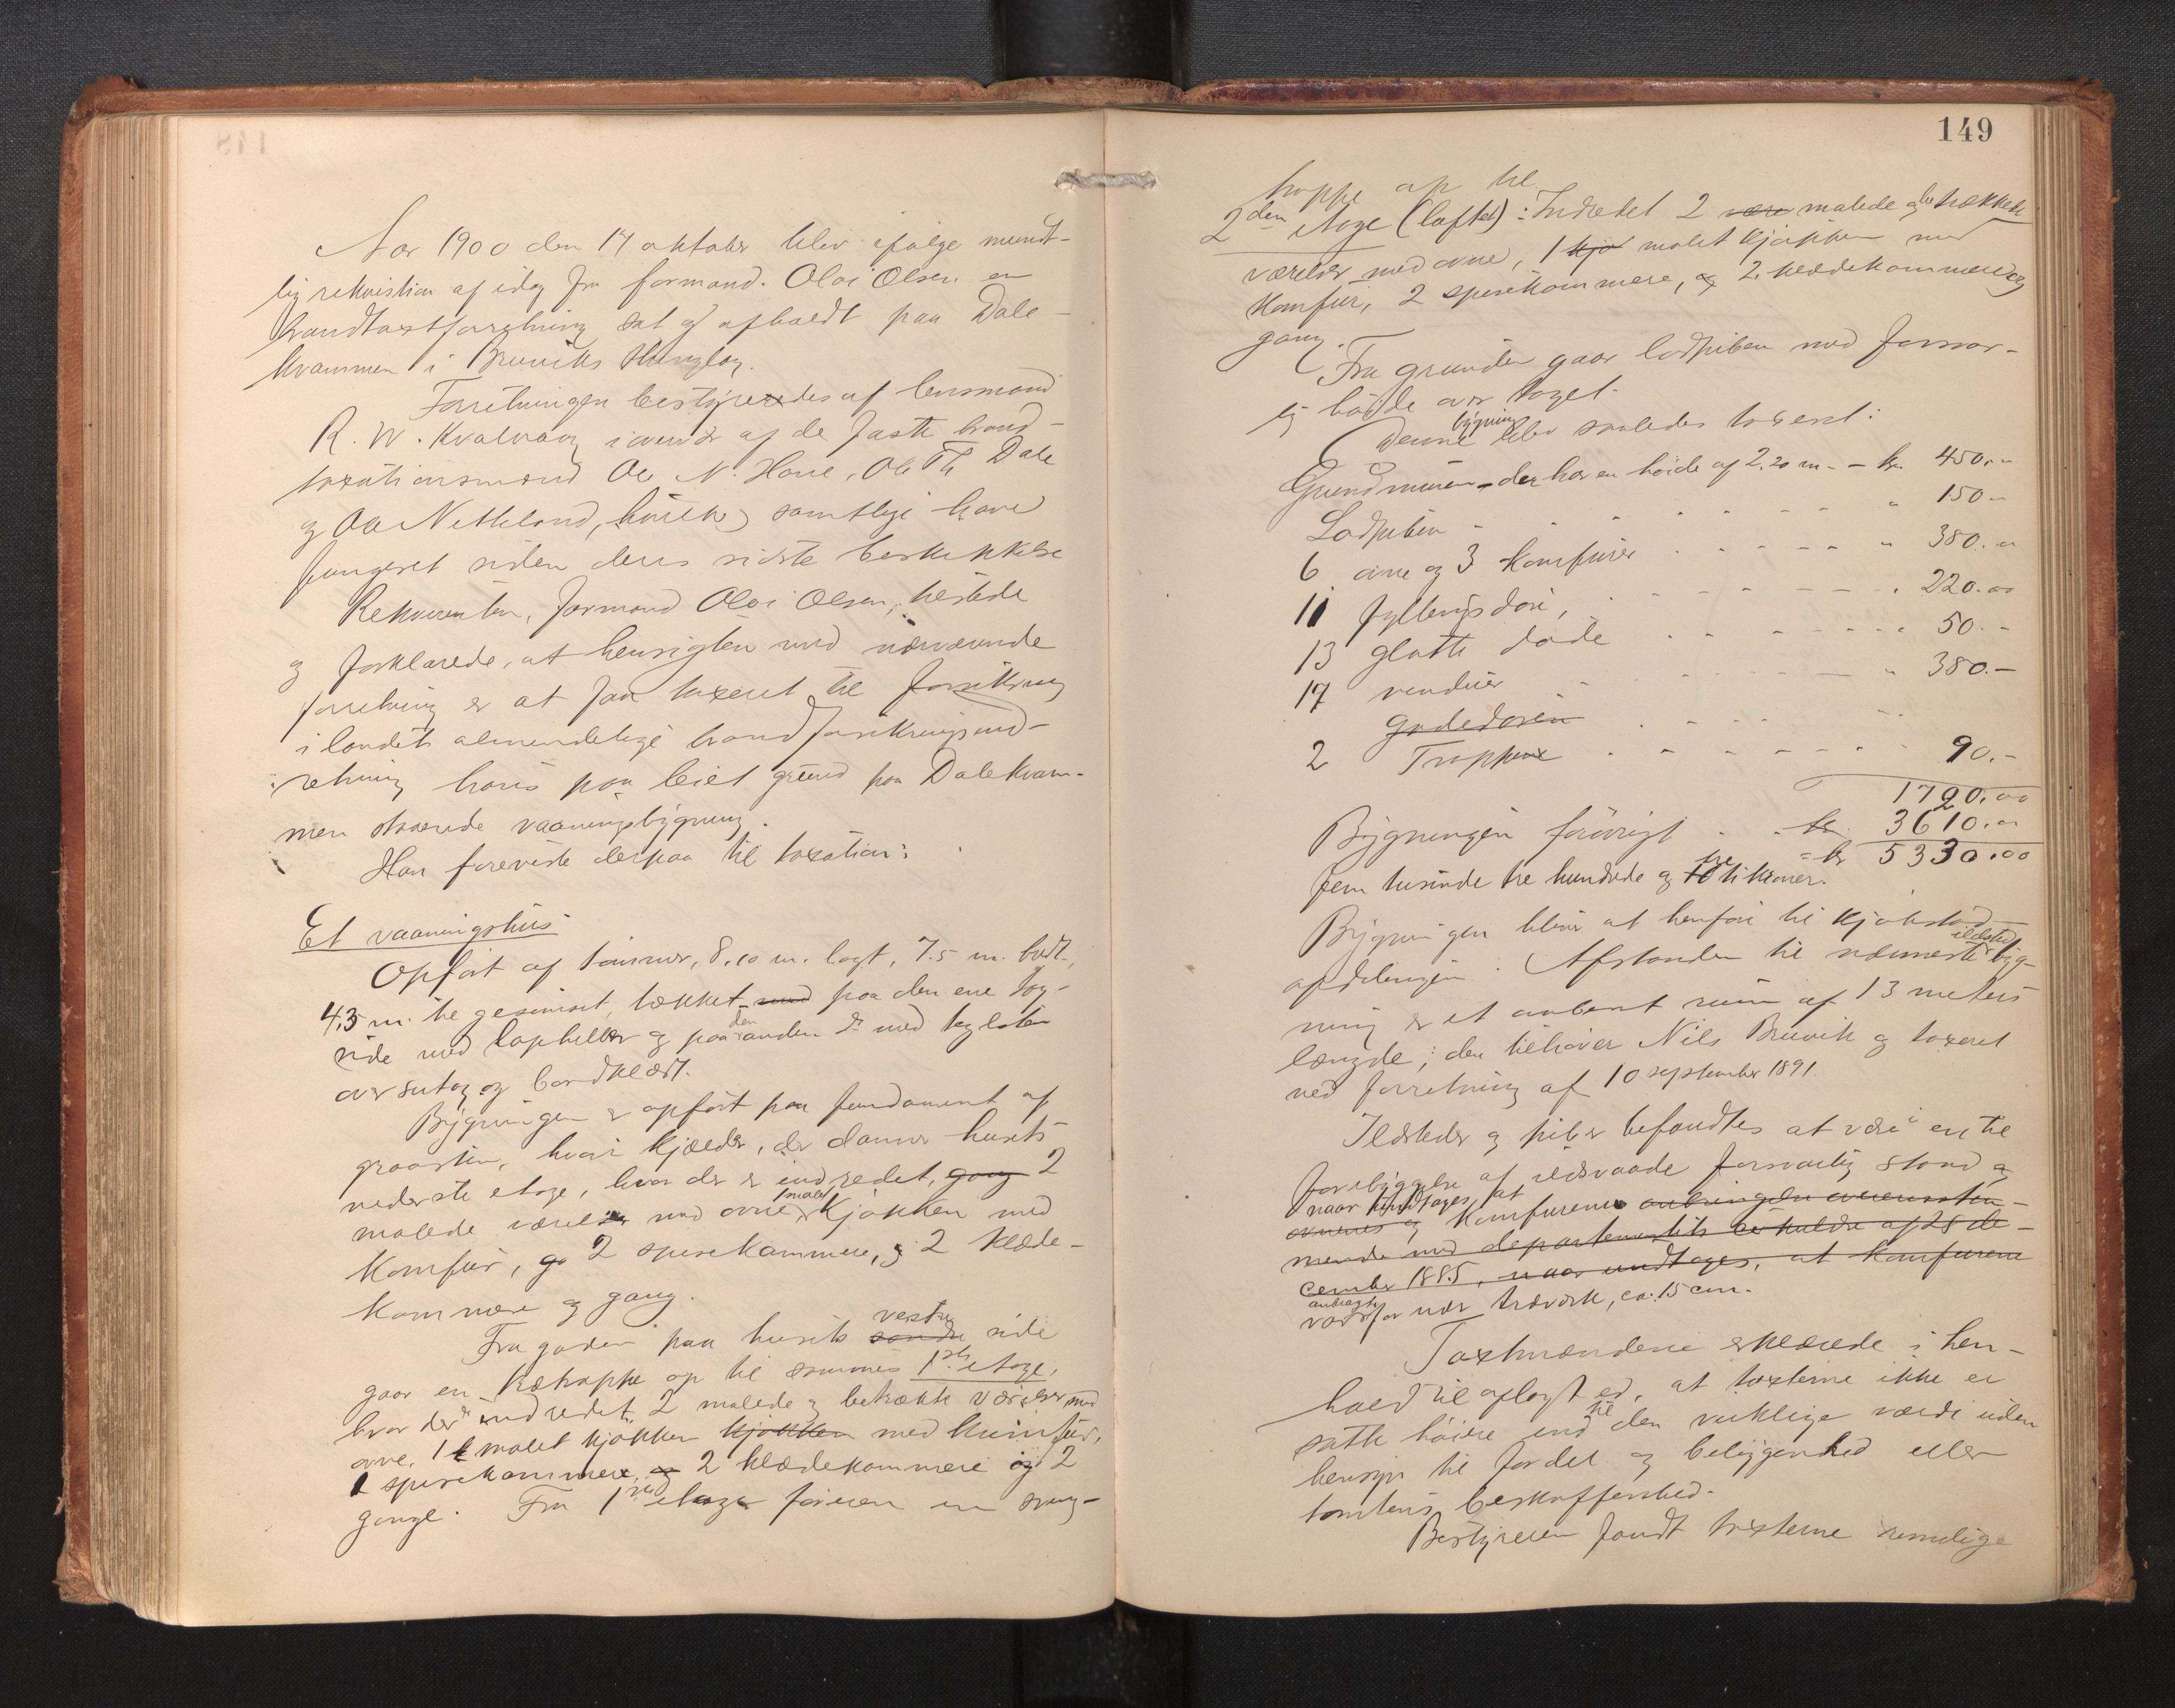 Aar 1900 den 17 oktober blev ifølge mundt-
lig rekvisition af idag fra formand Olai Olsen en
brandtaxtforretning sat og afholdt paa Dale-
kvammen i Bruviks thinglag.
Forretningen bestyredes af lensmand
R. W. Kvalvaag i overvær af de faste brand-
taxationsmænd Ole N. Hove, Ole Th Dale
og Ole Netteland, hvilke samtlige have
fungeret siden deres sidste beskikkelse
Rekvirenten, formand Olai Olsen, tilstede
og forklarede, at hensigten med nærværende
forretning er at faa taxeret til forsikring
i landets almindelige brandforsikringsind-
retning hans paa leiet grund paa Dalekvam-
men staaende vaaningsbygning.
Han foreviste derpaa til taxation:
Et vaaningshus
Opført af tømmer, 8.10 m. langt, 7.5 m. bredt,
4,5 m. til gesimset, tækket med paa den ene tag-
side med lapheller og paa den anden do med taglsten
over sutag og bordklædt.
Bygningen er opført paa fundament af
graasten, hvori kjælder, der danner husets
nederste etage, hvor der er indredet, gang 2
malede værelser med ovne, 1 malet kjøkken med
komfur, og 2 spisekammere, og 2 klæde-
kammere og gang.
Fra gaden paa husets søndre vestre side
gaar en trætrappe op til sammes 1ste etage,
hvor der er indredet 2 malede og betrækte værelser med
ovne, 1 malet kjøkken kjøkken med komfur,
1 spisekammere, og 2 klædekammere og 2
gange. Fra 1ste etage fører en sving-
149
trappe op til
2den etage (loftet): Indredet 2 være malede og betrækkede
værelser med ovne, 1 kjø malet kjøkken med
komfur, 2 spisekammere, og 2 klædekammere og
gang.
Fra grunden gaar lodpiben med forsvar-
lig høide over taget.
Denne bygning blev saaledes taxeret:
Grundmuren, der har en høide af 2.20 m. - kr. 450,-
Lodpiben " 150-
6 ovne og 3 komfurer " 380.-
11 fyllingsdøre, " 220.00
13 glatte døre " 50.-
17 vinduer " 380.-
gadedøren
2 Trapper 90.-
1720.00
Bygningen forøvrigt kr. 3610.00
= kr 5330.00
fem tusinde tre hundrede og tre ti kroner.
Bygningen bliver at henføre til kjøbstad-
afdelingen. Afstanden til nærmeste ildsteds byg-
ning er et aabent rum af 13 meters
længde; den tilhører Nils Bruvik og taxeret
ved forretning af 10 september 1891
Ildsteder og piber befandtes at være i en til
forebyggelse af ildsvaade forsvarlig stand og
naar undtages, at
ovnenes og komfurene anbringelse overensstem-
mende med departementets cirkulære af 28 de-
cember 1885, naar undtages, at komfurene
var anbragte for nær træværk, ca. 15 cm.
Taxtmændene erklærede i hen-
hold til aflagt ed, at taxterne ikke er
satte høiere end til den virkelige værdi uden
hensyn til fordel og beliggenhed eller
tomtens beskaffenhed.
Bestyreren fandt taxterne rimelige